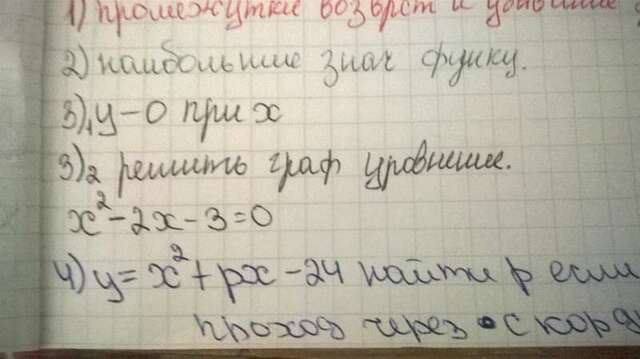 1) промежутки возврст и убывание
2) наибольшие знач функц.
3)₁ y-0 при x
3)₂ решить граф уровнение.
x²-2x-3=0
4) y=x²+px-24 найти p если
проход через • с корд